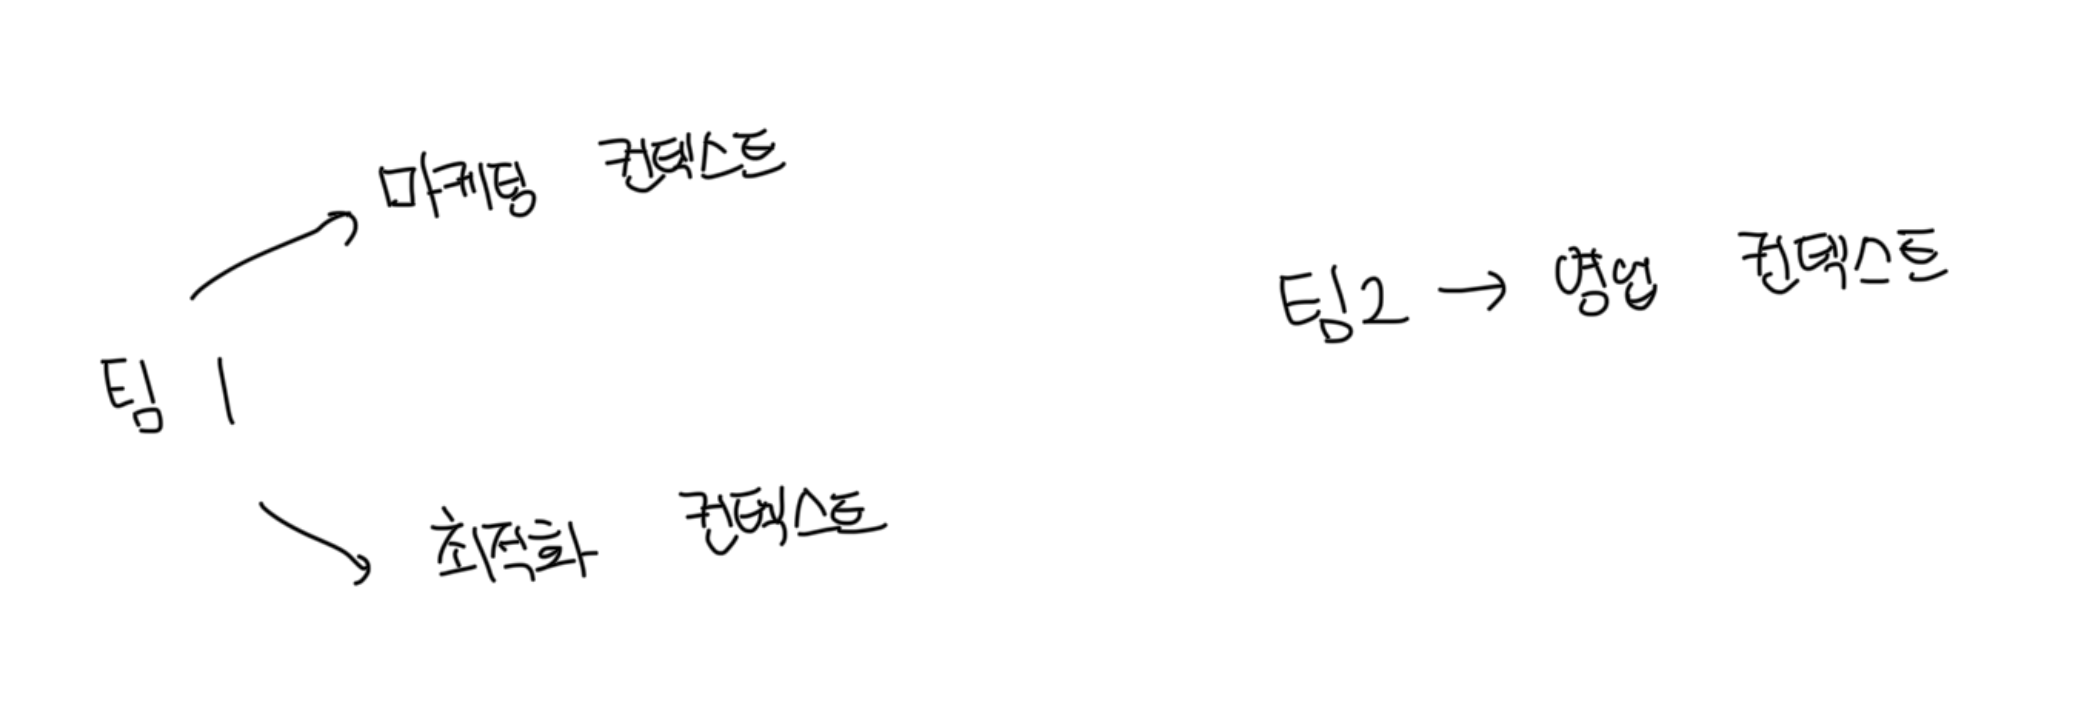 마케팅 컨텍스트
팀 1
최적화 컨텍스트
팀2 → 영업 컨텍스트